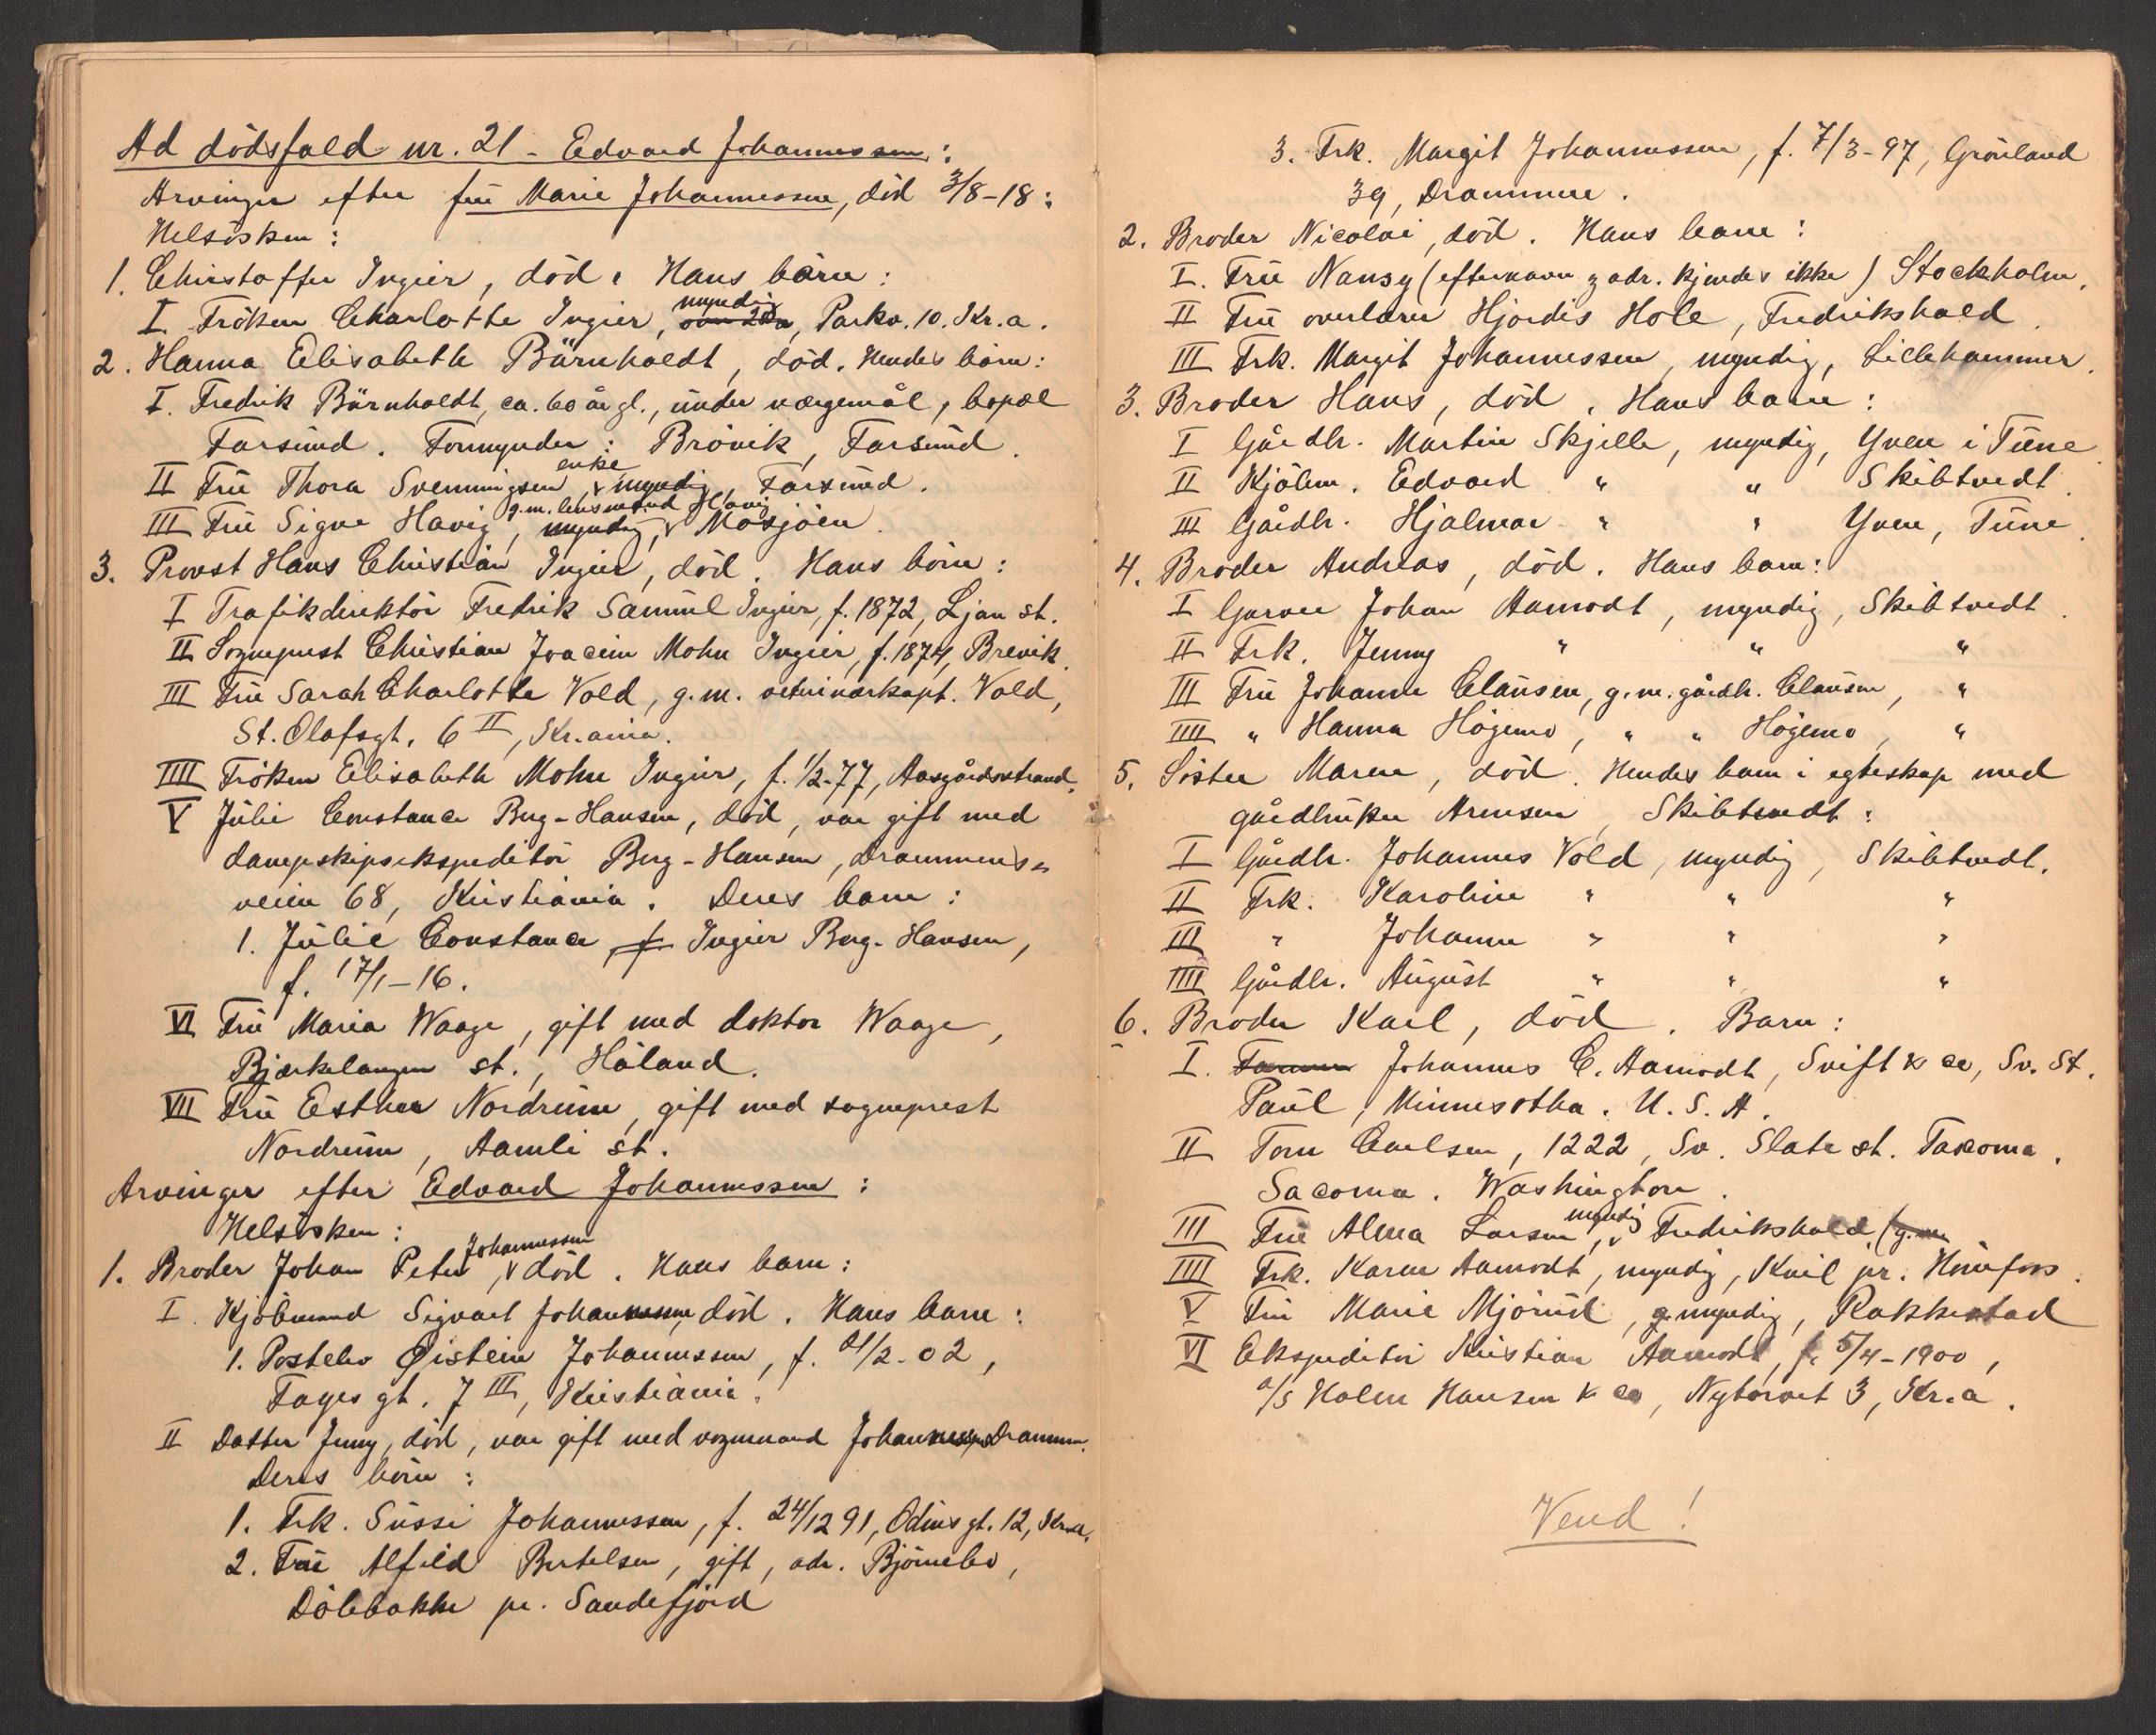 Ad dödsfald nr. 21 - Edvard Johannessen:
Arvinger efter frü Marie Johannessen, död 3/8-18:
Helsösken:
1. Christoffer Ingier, död. Hans børn:
I. Fröken Charlotte Ingier, myndig, Parkv. 10. Kr.a.
2. Hanna Elisabeth Bärnholdt, död. Hendes börn:
I. Fredrik Bärnholdt, ca. 60 år gl., ünder værgemål, bopæl
Farsünd. Formynder: Brövik, Farsünd.
II Frü Thora Svenningsen, enke, myndig, Farsünd.
III Frü Signe Havig, g.m. lensmand Havig, Mosjöen.
3. Provst Hans Christian Ingier, död. Hans börn:
I Trafikdirektör Fredrik Samüel Ingier, f. 1872, Ljan st.
II Sogneprest Christian Joacim Mohn Ingier, f. 1874, Brevik.
III Frü Sarah Charlotte Vold, g.m. veterinærkapt. Vold,
St. Olafsgt. 6 II, Kr.ania.
IIII Fröken Elisabeth Mohn Ingier, f. 1/2-77, Aasgårdsstrand.
V Jülie Constance Berg-Hansen, död, var gift med
dampskipsekspeditör Berg-Hansen, Drammens-
veien 68, Kristiania. Deres barn:
1. Jülie Constance f. Ingier Berg-Hansen,
f. 17/1-16.
VI Frü Maria Waage, gift med doktor Waage,
Bjørkelangen st., Höland.
VII Frü Esther Nordrüm, gift med sogneprest
Nordrüm, Aamli st.
Arvinger efter Edvard Johannessen:
Helsösken:
1. Broder Johan Peter Johannessen, död. Hans barn:
I. Kjöbmand Sigvart Johannessen, död. Hans barn:
1. Postelev Øistein Johannessen, f. 21/2-02,
Fayes gt. 7 III, Kristiania.
II Datter Jenny, död, var gift med vognmand Johannessen, Drammen.
Deres börn:
1. Frk. Süssi Johannessen, f. 24/12 91, Odins gt. 12, Kr.a.
2. Frü Alfild Bertelsen, gift, adr. Björnebo,
Dölebakke pr. Sandefjord
3. Frk. Margit Johannessen, f. 7/3-97, Grönland
39, Drammen.
2. Broder Nicolai, död. Hans barn:
I. Frü Nansy (efternavn & adr. kjendes ikke) Stockholm.
II Frü overlærer Hjördis Hole, Fredrikshald.
III Frk. Margit Johannessen, myndig, Lillehammer.
3. Broder Hans, död. Hans barn:
I Gårdbr. Martin Skjelle, myndig, Yven i Tüne.
II Kjöbm. Edvard " " Skibtvedt.
III Gårdbr. Hjalmar " " Yven, Tüne.
4. Broder Andreas, död. Hans barn:
I Garver Johan Aamodt, myndig, Skibtvedt.
II Frk. Jenny " " "
III Frü Johanne Claüsen, g.m. gårdbr. Claüsen, "
IIII " Hanna Högemo, " " Högemo, "
5. Söster Maren, död. Hendes barn i egteskap med
gårdbrüker Arnesen, Skibtvedt:
I Gårdbr. Johannes Vold, myndig, Skibtvedt.
II Frk. Karoline " " "
III " Johanne " " "
IIII Gårdbr. Aügüst " " "
6. Broder Karl, död. Barn:
I. Johannes C. Aamodt, Svift & co, So. St.
Paül, Minnesotha. U.S.A.
II Tom Carlsen, 1222, So. Slate st. Tacoma.
Sacoma. Washington.
III Frü Alma Larsen, myndig, Fredrikshald (g.m.
IIII Frk. Karen Aamodt, myndig, Kvil pr. Hönefoss.
V Frü Marie Mjörüd, myndig, Rakkestad
VI Ekspeditör Kristian Aamodt, f. 5/4-1900,
a/s Holm Hansen & co, Nytorvet 3, Kr.a.
Vend!